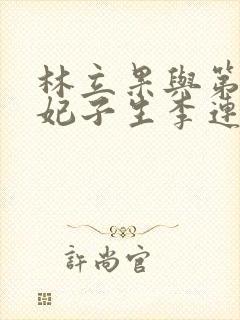 林立果與第
妃子生李連
許尚官